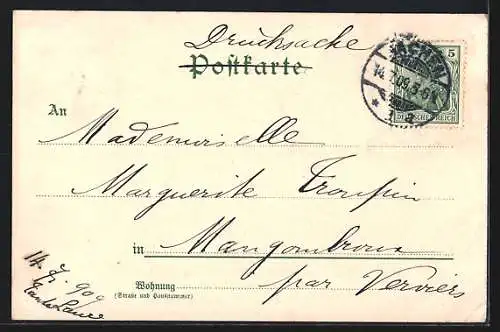 Drucksache
Postkarte
5
AACHEN
14.7.09.5-6N
DEUTSCHES REICH
An
Mademoiselle
Marguerite Troupin
in Mangombroux
Wohnung
(Straße und Hausnummer)
par Verviers
14. 7. 909